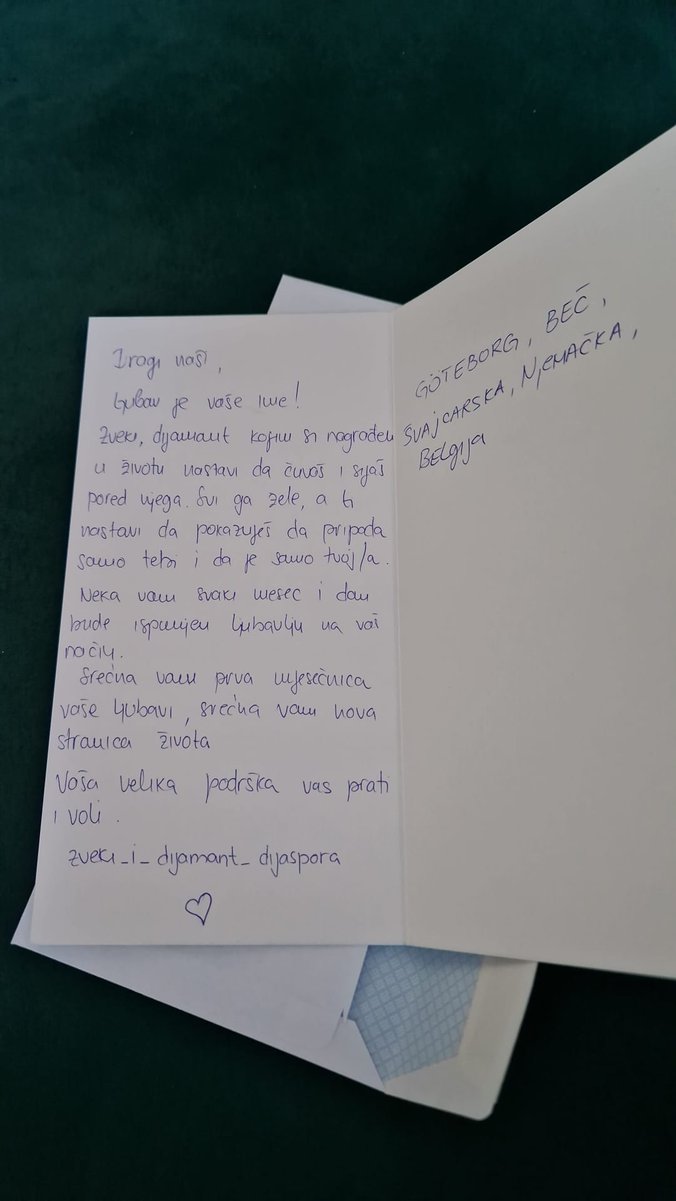 Dragi naši,
Ljubav je vaše ime!
Zveki, dijamant kojim si nagrađen
u životu nastavi da čuvaš i sijaš
pored njega. Svi ga žele, a ti
nastavi da pokazuješ da pripada
samo tebi i da je samo tvoj/a.
Neka vam svaki mesec i dan
bude ispunjen ljubavlju na vaš
način.
Srećna vam prva mjesečnica
vaše ljubavi, srećna vam nova
stranica života
Vaša velika podrška vas prati
i voli.
zveki_i_dijamant_dijaspora
GÖTEBORG, BEČ,
ŠVAJCARSKA, NJEMAČKA,
BELGIJA